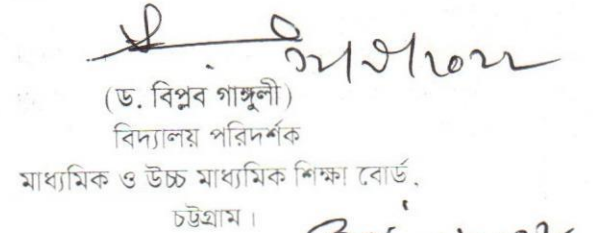 (ড. বিপ্লব গাঙ্গুলী)
বিদ্যালয় পরিদর্শক
মাধ্যমিক ও উচ্চ মাধ্যমিক শিক্ষা বোর্ড,
চট্টগ্রাম।